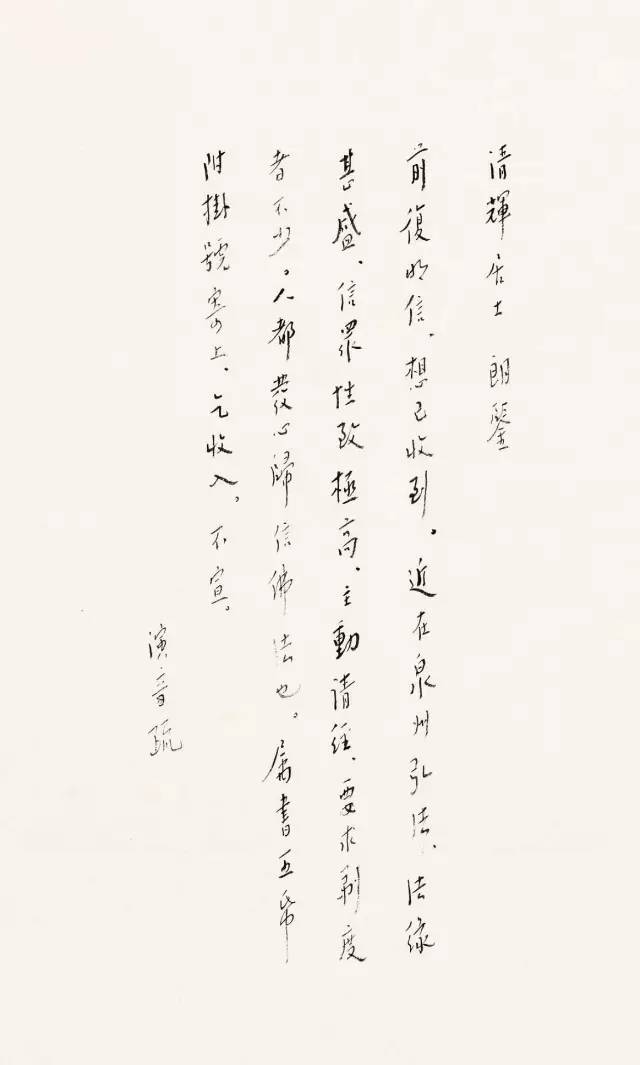 清輝居士　朗鑒
前復明信、想已收到。近在泉州弘法、法緣
甚盛、信眾性致極高、主動請經、要求剃度
者不少。人都發心歸信佛法也。屬書五帋
附掛號寄上、乞收入。不宣。
演音疏